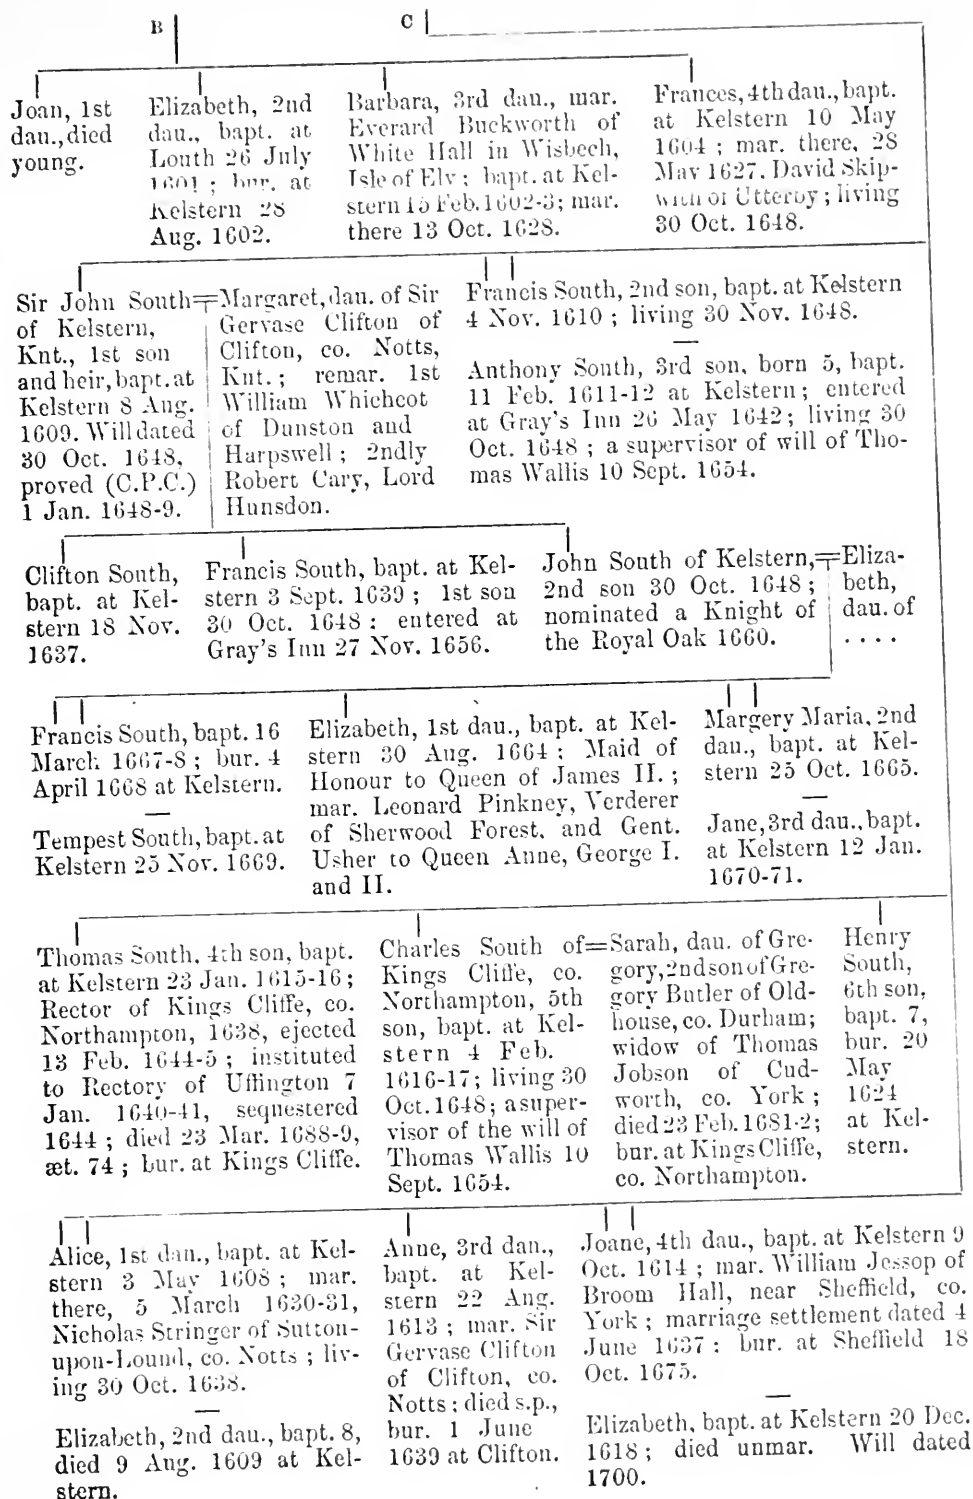 B
C
Joan, 1st
dau., died
young.
Elizabeth, 2nd
dau., bapt. at
Louth 26 July
1601 ; bur. at
Kelstern 28
Aug. 1602.
Barbara, 3rd dau., mar.
Everard Buckworth of
White Hall in Wisbech,
Isle of Ely ; bapt. at Kel-
stern 15 Feb. 1602-3; mar.
there 13 Oct. 1628.
Frances, 4th dau., bapt.
at Kelstern 10 May
1604 ; mar. there, 28
May 1627, David Skip-
with of Utterby ; living
30 Oct. 1648.
Sir John South
of Kelstern,
Knt., 1st son
and heir, bapt. at
Kelstern 8 Aug.
1609. Will dated
30 Oct. 1648,
proved (C.P.C.)
1 Jan. 1648-9.
Margaret, dau. of Sir
Gervase Clifton of
Clifton, co. Notts,
Knt. ; remar. 1st
William Whichcot
of Dunston and
Harpswell ; 2ndly
Robert Cary, Lord
Hunsdon.
Francis South, 2nd son, bapt. at Kelstern
4 Nov. 1610 ; living 30 Nov. 1648.
Anthony South, 3rd son, born 5, bapt.
11 Feb. 1611-12 at Kelstern ; entered
at Gray's Inn 26 May 1642 ; living 30
Oct. 1648 ; a supervisor of will of Tho-
mas Wallis 10 Sept. 1654.
Clifton South,
bapt. at Kel-
stern 18 Nov.
1637.
Francis South, bapt. at Kel-
stern 3 Sept. 1639 ; 1st son
30 Oct. 1648 : entered at
Gray's Inn 27 Nov. 1656.
John South of Kelstern,
2nd son 30 Oct. 1648 ;
nominated a Knight of
the Royal Oak 1660.
Eliza-
beth,
dau. of
. . . .
Francis South, bapt. 16
March 1667-8 ; bur. 4
April 1668 at Kelstern.
Tempest South, bapt. at
Kelstern 25 Nov. 1669.
Elizabeth, 1st dau., bapt. at Kel-
stern 30 Aug. 1664 ; Maid of
Honour to Queen of James II. ;
mar. Leonard Pinkney, Verderer
of Sherwood Forest, and Gent.
Usher to Queen Anne, George I.
and II.
Margery Maria, 2nd
dau., bapt. at Kel-
stern 25 Oct. 1665.
Jane, 3rd dau., bapt.
at Kelstern 12 Jan.
1670-71.
Thomas South, 4th son, bapt.
at Kelstern 23 Jan. 1615-16 ;
Rector of Kings Cliffe, co.
Northampton, 1638, ejected
13 Feb. 1644-5 ; instituted
to Rectory of Uffington 7
Jan. 1640-41, sequestered
1644 ; died 23 Mar. 1688-9,
æt. 74 ; bur. at Kings Cliffe.
Charles South of
Kings Cliffe, co.
Northampton, 5th
son, bapt. at Kel-
stern 4 Feb.
1616-17; living 30
Oct. 1648; a super-
visor of the will of
Thomas Wallis 10
Sept. 1654.
Sarah, dau. of Gre-
gory, 2nd son of Gre-
gory Butler of Old-
house, co. Durham;
widow of Thomas
Jobson of Cud-
worth, co. York ;
died 23 Feb. 1681-2;
bur. at Kings Cliffe,
co. Northampton.
Henry
South,
6th son,
bapt. 7,
bur. 20
May
1624
at Kel-
stern.
Alice, 1st dau., bapt. at Kel-
stern 3 May 1608 ; mar.
there, 5 March 1630-31,
Nicholas Stringer of Sutton-
upon-Lound, co. Notts ; liv-
ing 30 Oct. 1638.
Elizabeth, 2nd dau., bapt. 8,
died 9 Aug. 1609 at Kel-
stern.
Anne, 3rd dau.,
bapt. at Kel-
stern 22 Aug.
1613 ; mar. Sir
Gervase Clifton
of Clifton, co.
Notts ; died s.p.,
bur. 1 June
1639 at Clifton.
Joane, 4th dau., bapt. at Kelstern 9
Oct. 1614 ; mar. William Jessop of
Broom Hall, near Sheffield, co.
York ; marriage settlement dated 4
June 1637 ; bur. at Sheffield 18
Oct. 1675.
Elizabeth, bapt. at Kelstern 20 Dec.
1618 ; died unmar. Will dated
1700.